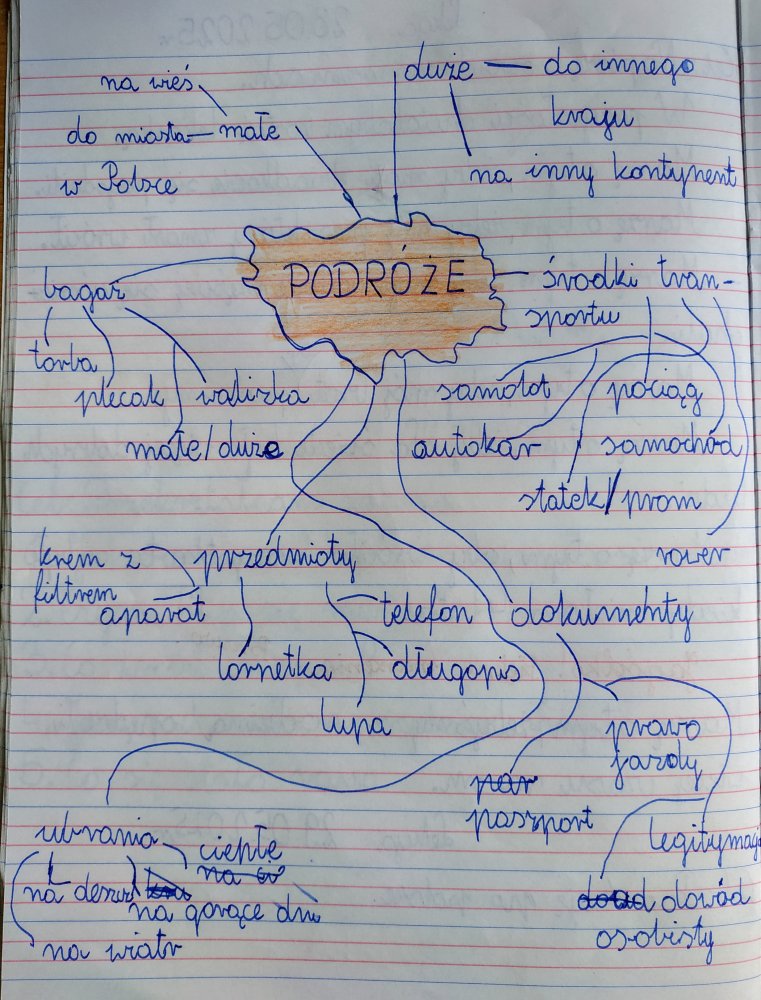 duże — do innego
kraju
na inny kontynent
na wieś
do miasta — małe
w Polsce
PODRÓŻE
bagaż
torba
plecak
walizka
małe/duże
środki tran-
sportu
samolot
pociąg
autokar
samochód
statek/prom
rower
krem z
filtrem
przedmioty
aparat
telefon
lornetka
długopis
lupa
dokumenty
prawo
jazdy
par
paszport
legitymacj
dowód
osobisty
ubrania
ciepłe
na deszcz
na gorące dni
na wiatr